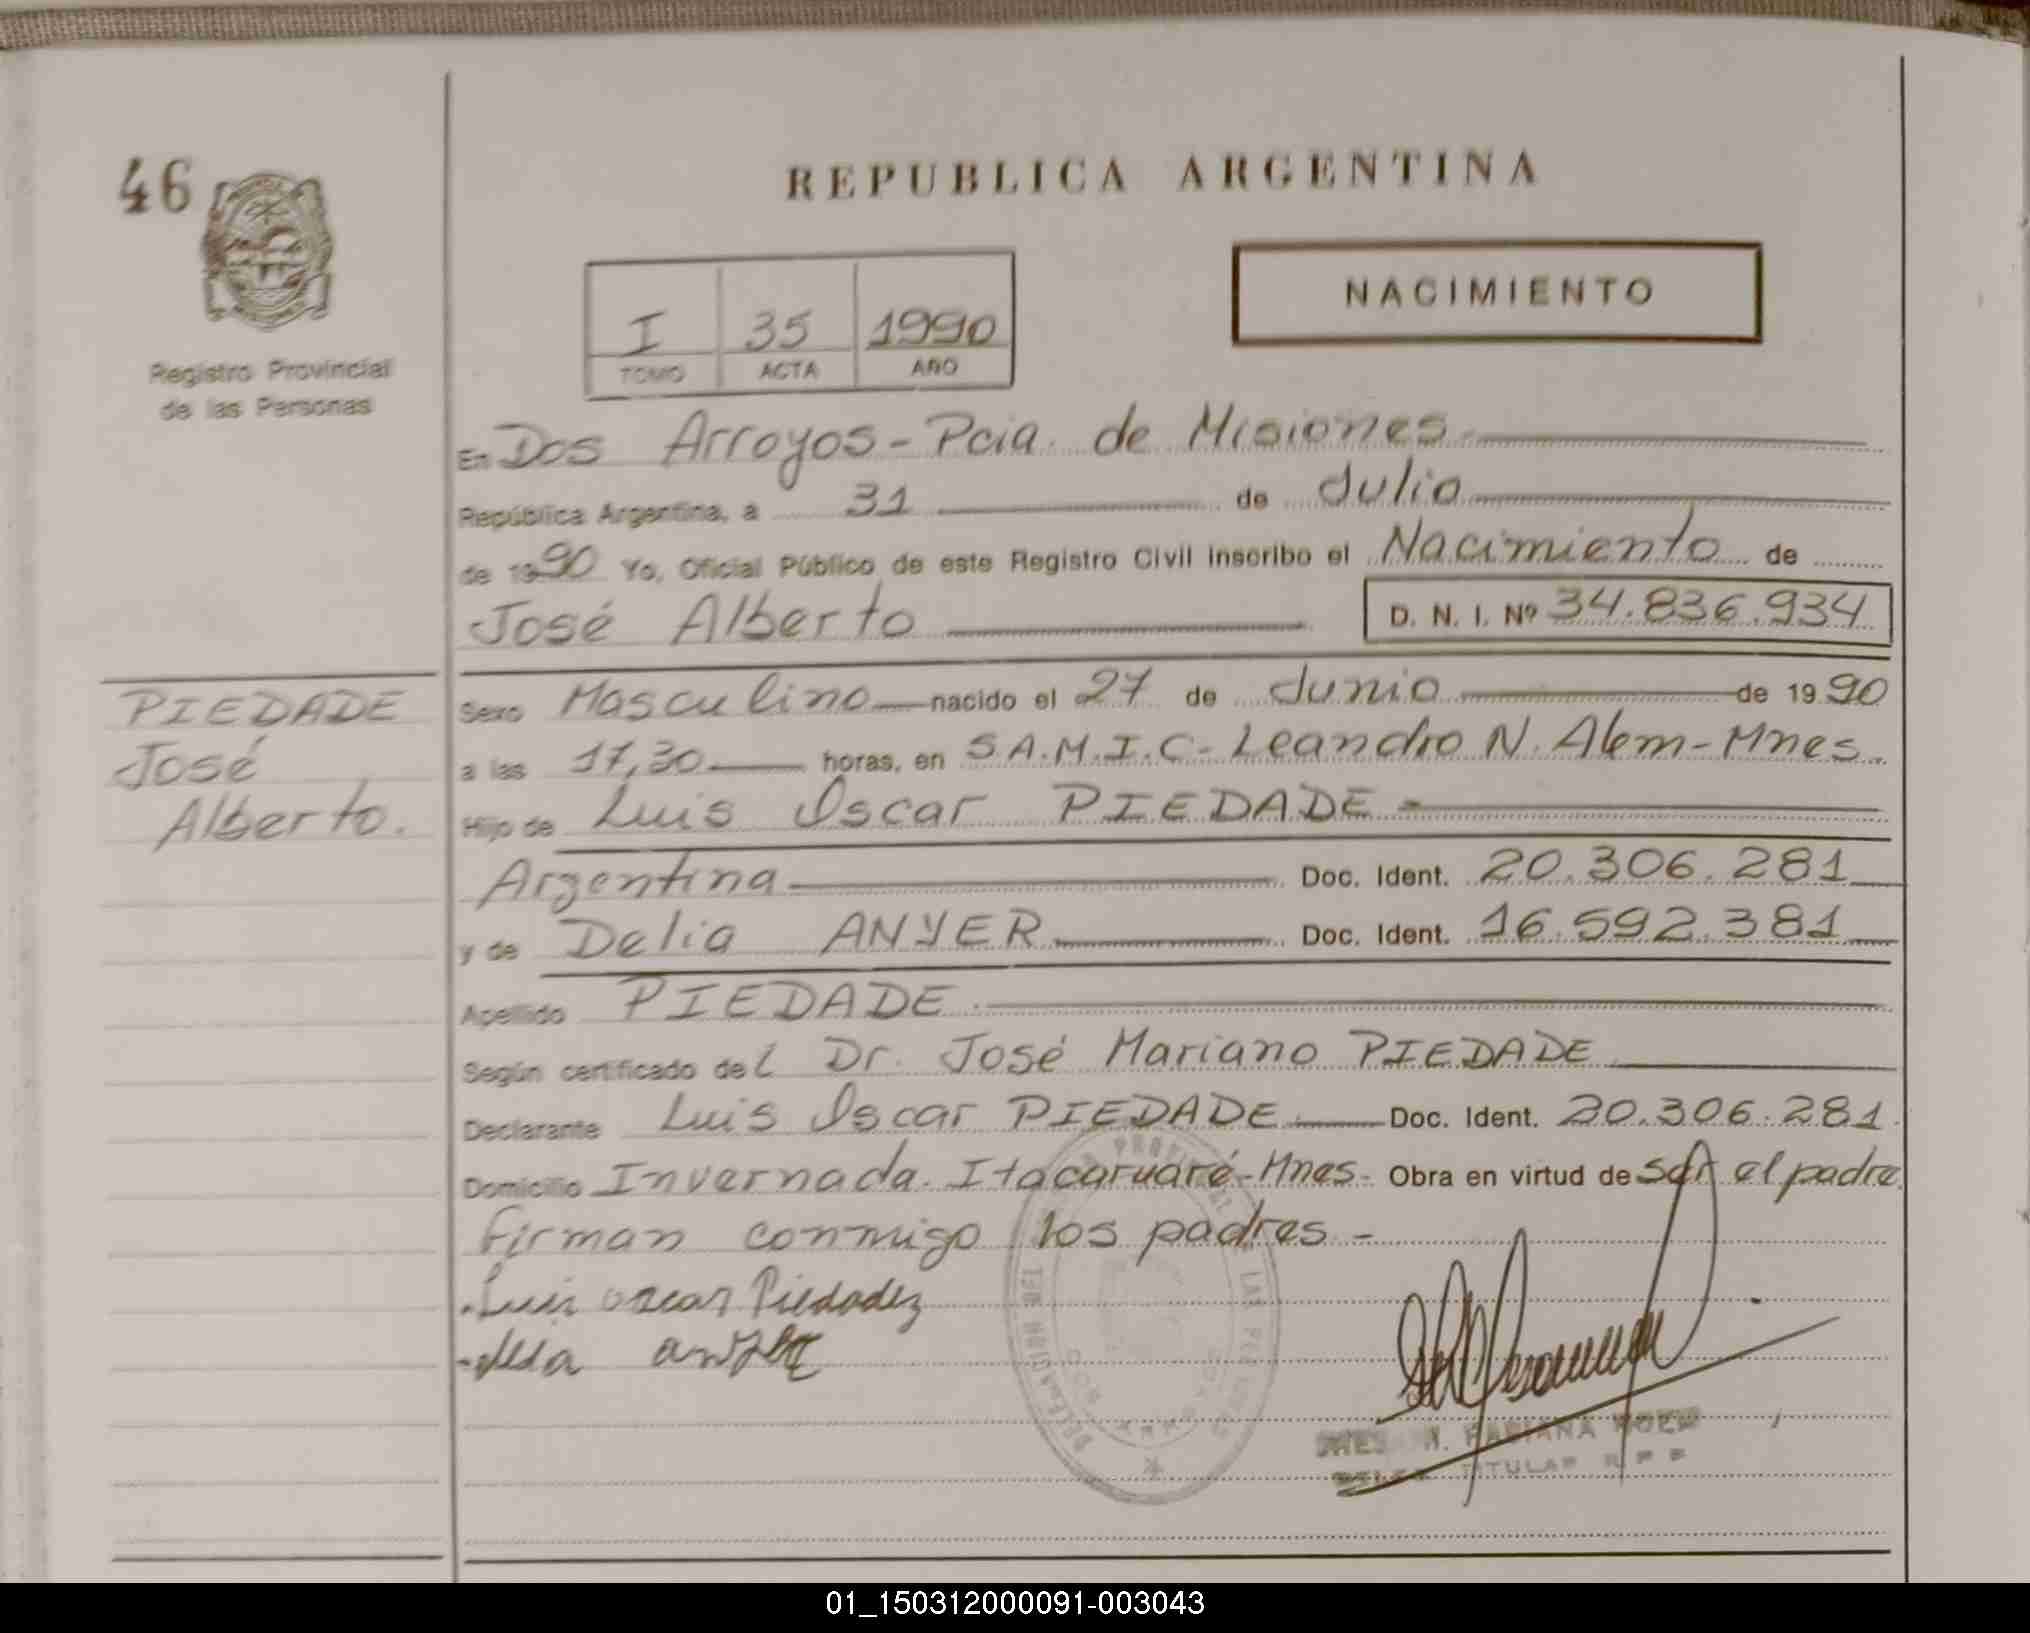 46
REPUBLICA ARGENTINA
NACIMIENTO
I 35 1990
TOMO ACTA AÑO
Registro Provincial
de las Personas
En Dos Arroyos - Pcia. de Misiones
República Argentina, a 31 de Julio
de 1990 Yo, Oficial Público de este Registro Civil inscribo el Nacimiento de
José Alberto D. N. I. Nº 34.836.934
PIEDADE
José
Alberto.
Sexo Masculino nacido el 27 de Junio de 1990
a las 17,30 horas, en S.A.M.I.C- Leandro N. Alem - Mnes.
Hijo de Luis Oscar PIEDADE -
Argentina Doc. Ident. 20.306.281
y de Delia ANYER Doc. Ident. 16.592.381
Apellido PIEDADE
Según certificado del Dr. José Mariano PIEDADE
Declarante Luis Oscar PIEDADE Doc. Ident. 20.306.281
Domicilio Invernada. Itacaruaré - Mnes - Obra en virtud de ser el padre.
Firman conmigo los padres -
Luis Oscar
FABIANA
TITULAR R P P
01_150312000091-003043